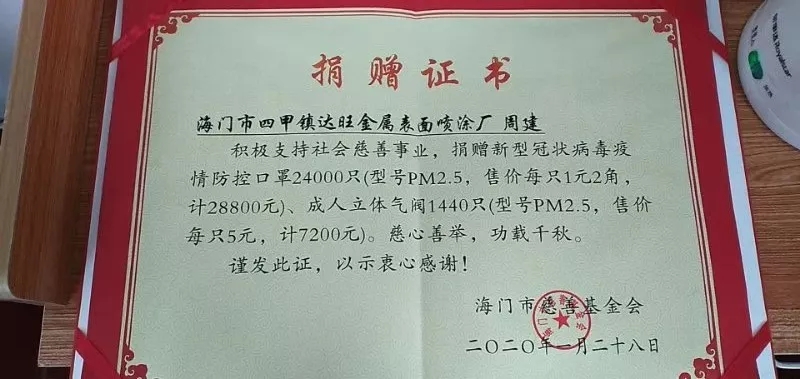 捐赠证书
海门市四甲镇达旺金属表面喷涂厂 周建
积极支持社会慈善事业，捐赠新型冠状病毒疫
情防控口罩24000只(型号PM2.5，售价每只1元2角，
计28800元)、成人立体气阀1440只(型号PM2.5，售价
每只5元，计7200元)。慈心善举，功载千秋。
谨发此证，以示衷心感谢！
海门市慈善基金会
二〇二〇年一月二十八日